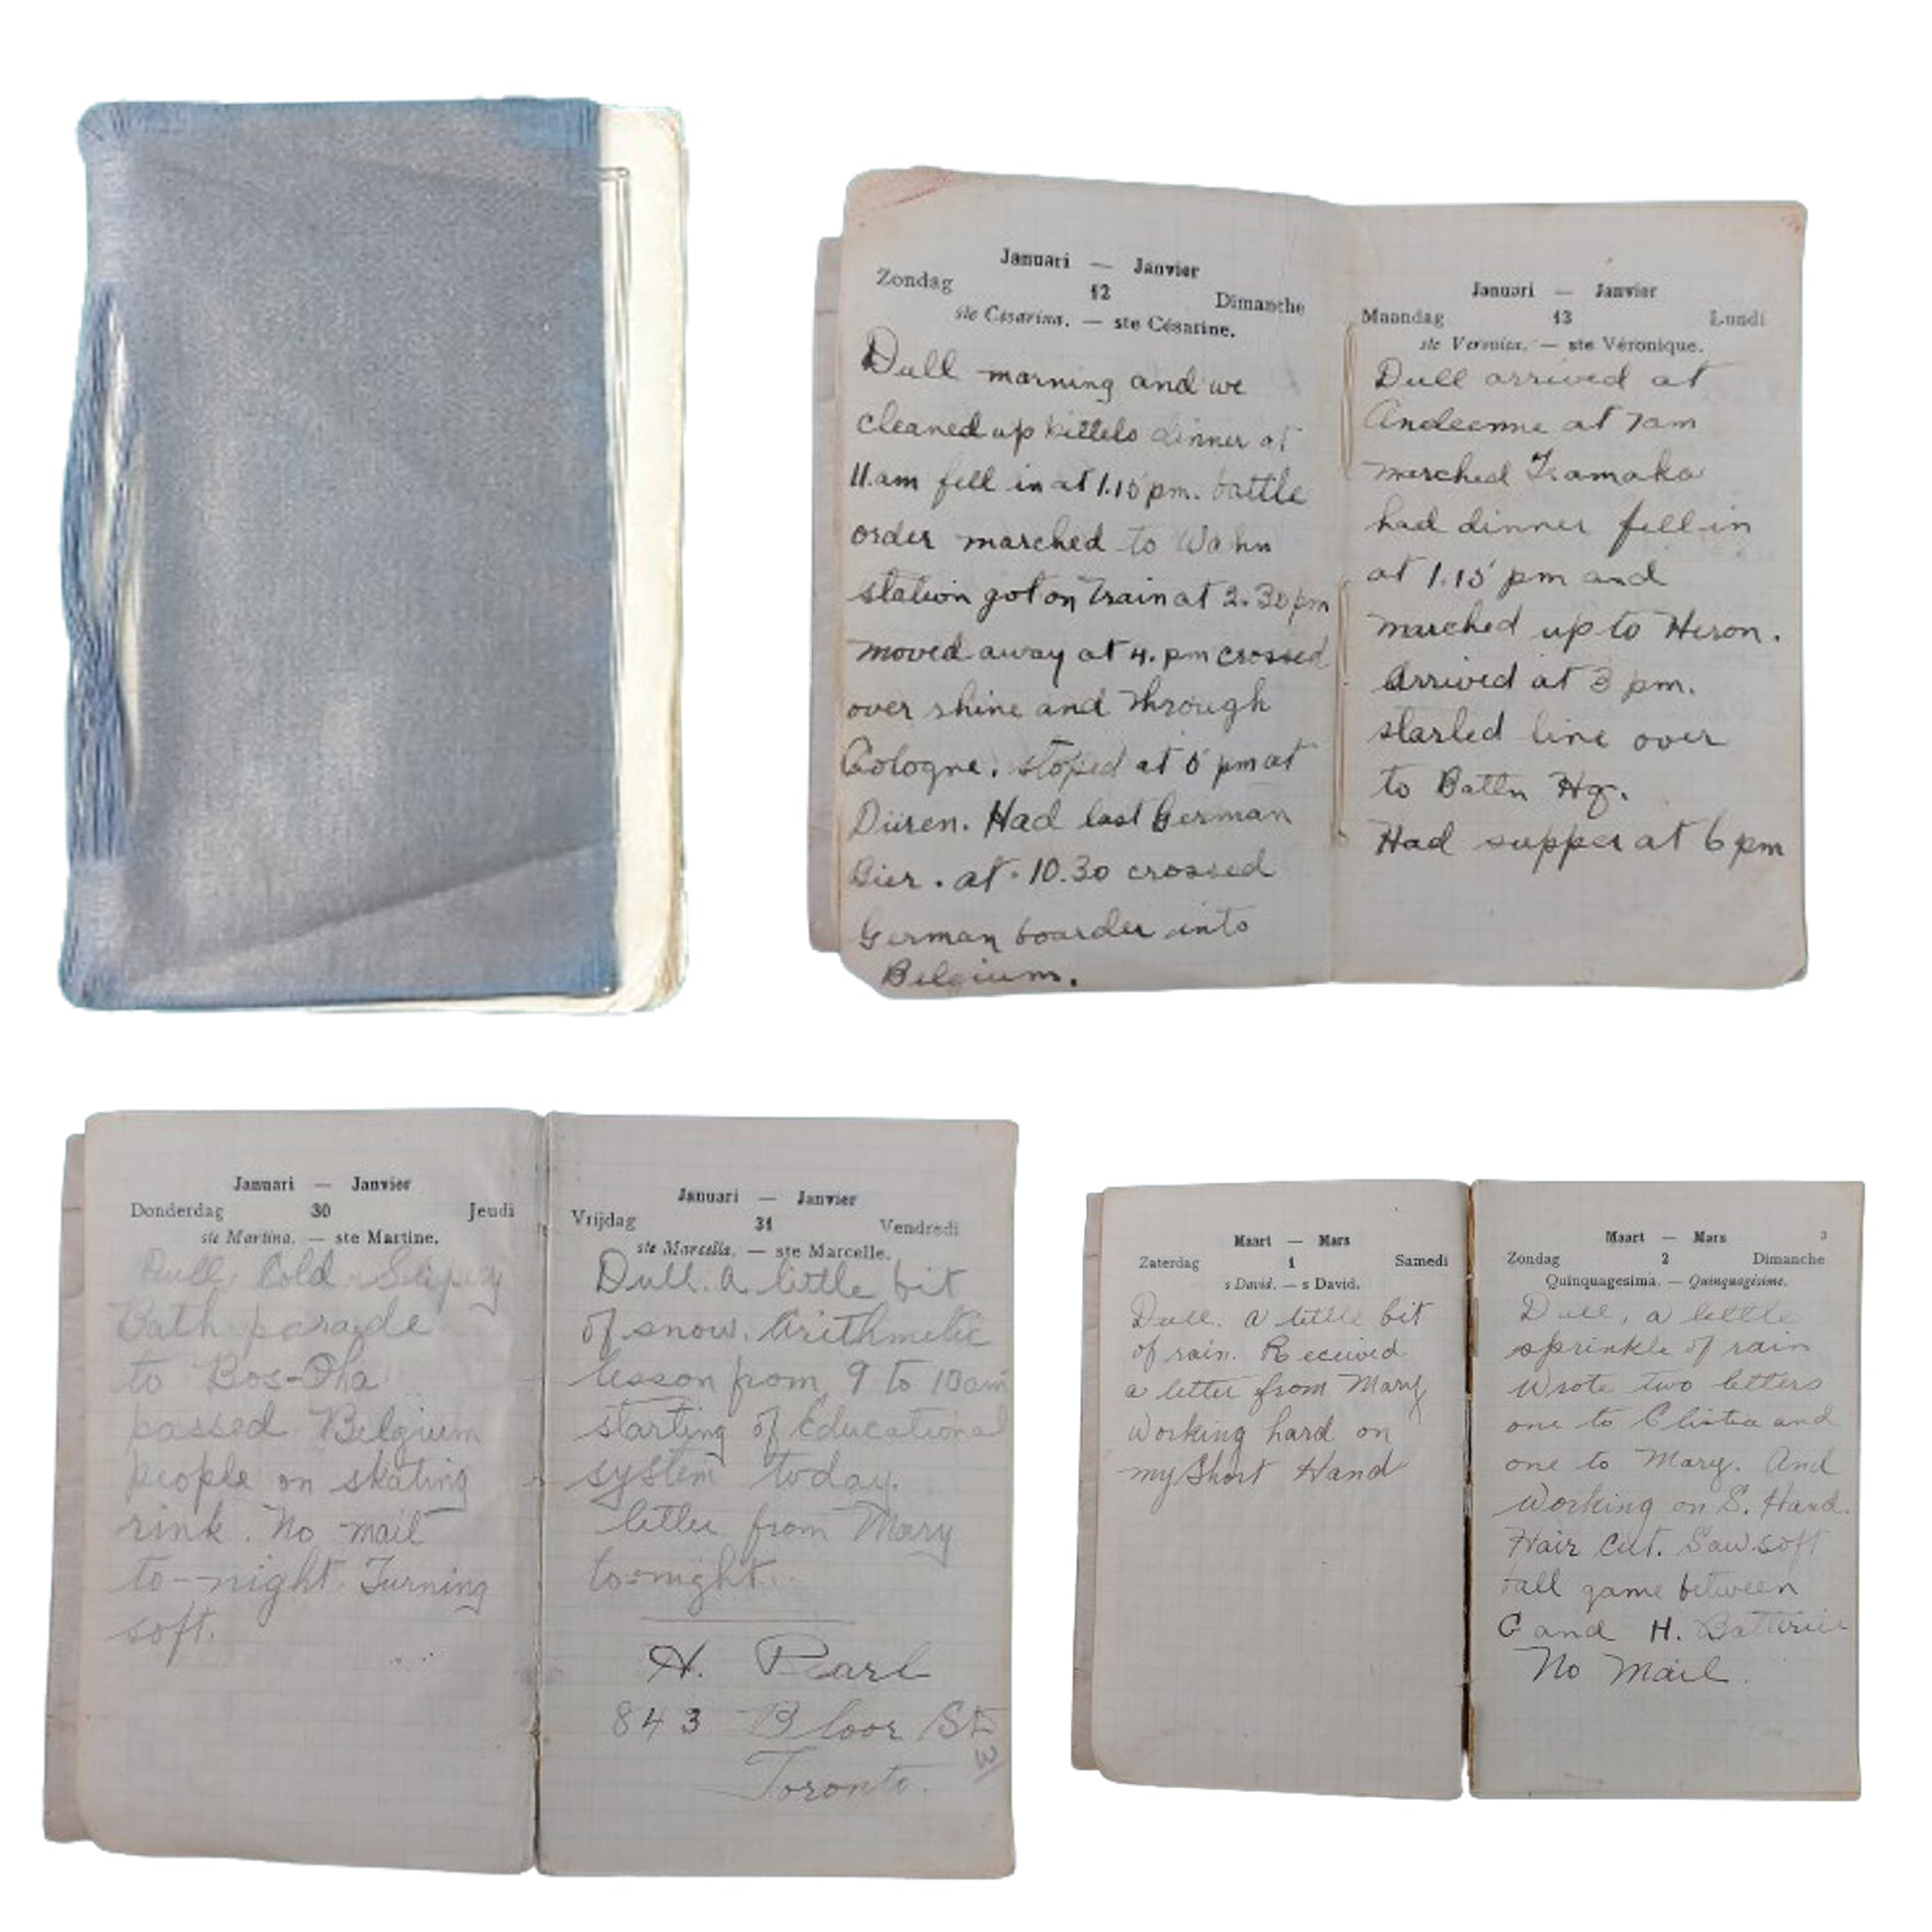 Januari — Janvier
Zondag 12 Dimanche
ste Césarina. — ste Césarine.
Dull morning and we
cleaned up billets dinner at
11.am fell in at 1.15 pm. battle
order marched to Wahn
station got on Train at 2.30 pm
moved away at 4. pm crossed
over rhine and through
Cologne. stoped at 5 pm at
Düren. Had last German
Bier. at 10.30 crossed
German boarder into
Belgium.
Januari — Janvier
Maandag 13 Lundi
ste Veronica. — ste Véronique.
Dull arrived at
Andeenne at 7am
marched Tramaka
had dinner fell in
at 1.15 pm and
marched up to Heron.
Arrived at 3 pm.
started line over
to Battn Hq.
Had supper at 6 pm
Januari — Janvier
Donderdag 30 Jeudi
ste Martina. — ste Martine.
Dull, Cold. Slipery
Bath parade
to Bos-Oha
passed Belgium
people on skating
rink. No mail
to-night. Turning
soft.
Januari — Janvier
Vrijdag 31 Vendredi
ste Marcella. — ste Marcelle.
Dull. A little bit
of snow. Arithmetic
lesson from 9 to 10am
starting of Educational
system today.
letter from Mary
to-night.
H. Pearl
843 Bloor St
W
Toronto.
Maart — Mars
Zaterdag 1 Samedi
s David. — s David.
Dull. A little bit
of rain. Received
a letter from Mary
Working hard on
my Short Hand
Maart — Mars 3
Zondag 2 Dimanche
Quinquagesima. — Quinquagésime.
Dull, a little
sprinkle of rain
Wrote two letters
one to and
one to Mary. And
Working on S. Hand.
Hair cut. Saw soft
ball game between
C and H. Batteries
No Mail.